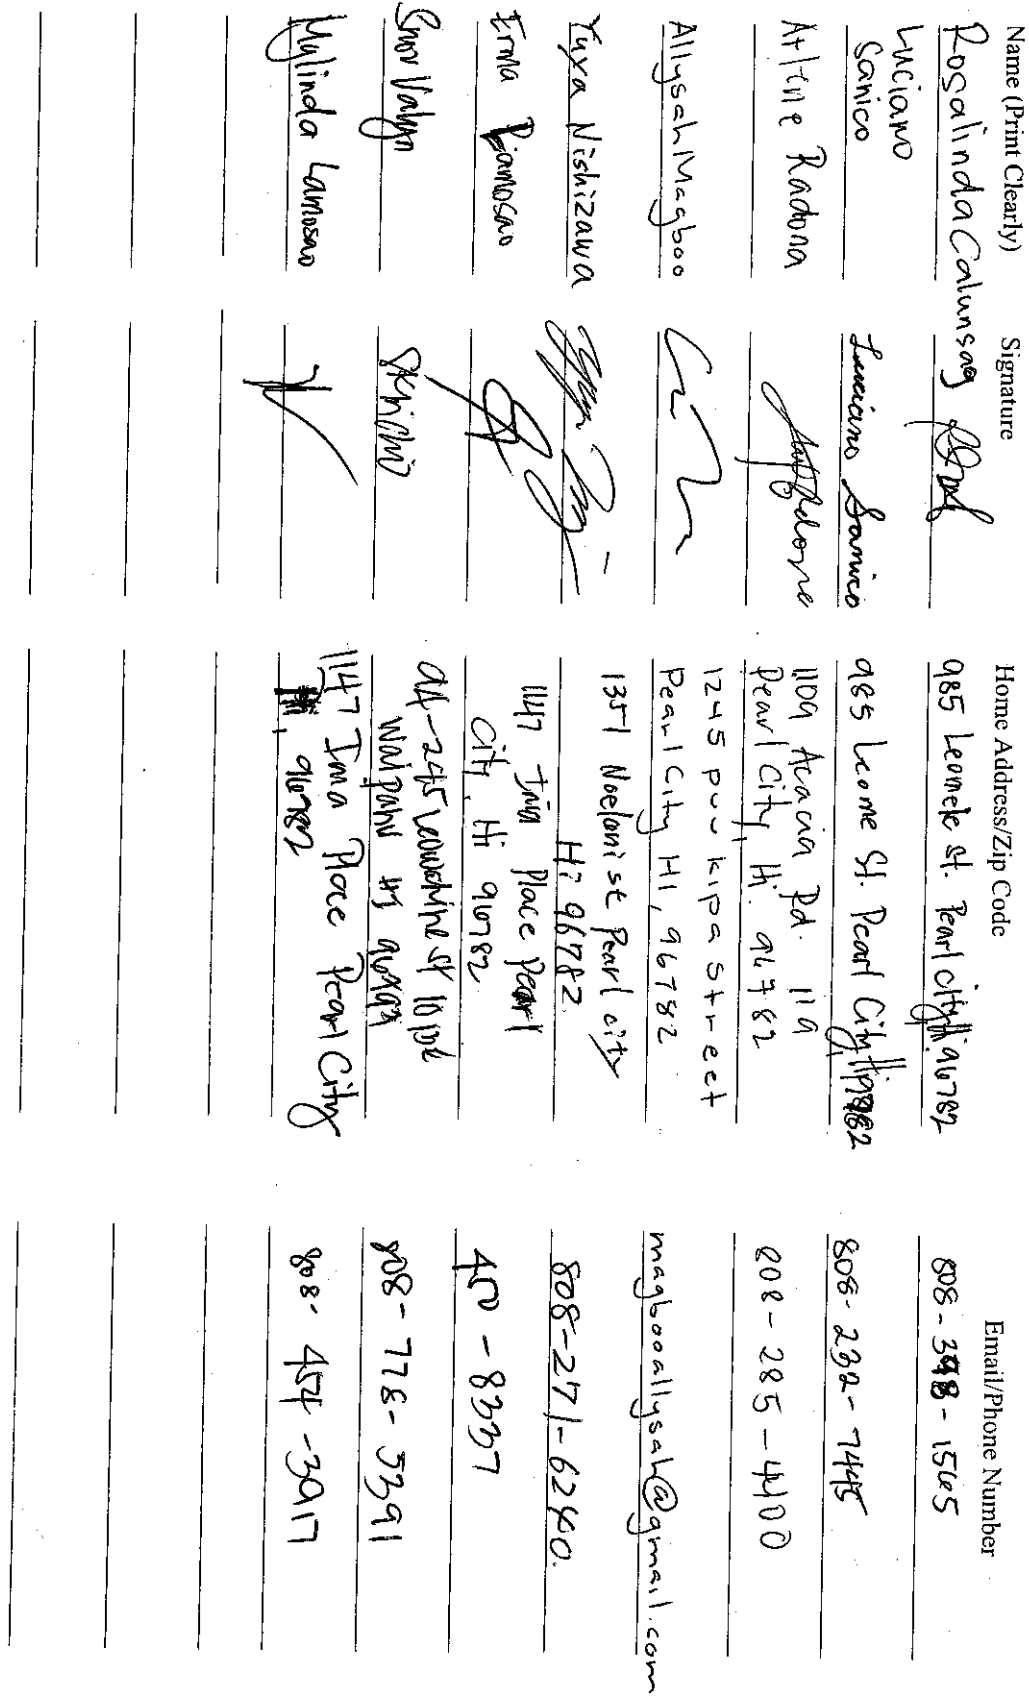 Name (Print Clearly) Signature Home Address/Zip Code Email/Phone Number
Rosalinda Calunsag 985 Leomele st. Pearl city Hi 96782 808-398-1565
Luciano
Sanico Luciano Sanico 985 Leome St. Pearl City Hi 808-232-7445
Arlene Radona 1109 Acacia Rd. 119
Pearl City, Hi. 96782 808-285-4100
Allysah Magboo 1245 puu kipa street
Pearl City HI, 96782 magbooallysah@gmail.com
Yuya Nishizawa 1351 Noelani st Pearl city
Hi 96782 808-271-6240.
Erma 1147 Ima Place Pearl
City, Hi 96782 -8337
94-245 st
Waipahu 808-778-5391
Mylinda Lamosao 1147 Ima Place Pearl City
96782 808-454-3917